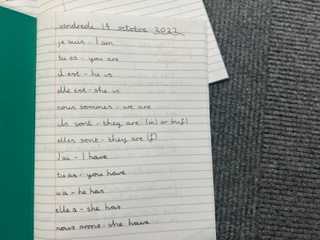 vendredi 14 octobre 2022
je suis - I am
tu es - you are
il est - he is
elle est - she is
nous sommes - we are
ils sont - they are (m) or (m+f)
elles sont - they are (f)
J'ai - I have
tu as - you have
il a - he has
elle a - she has
nous avons - she have